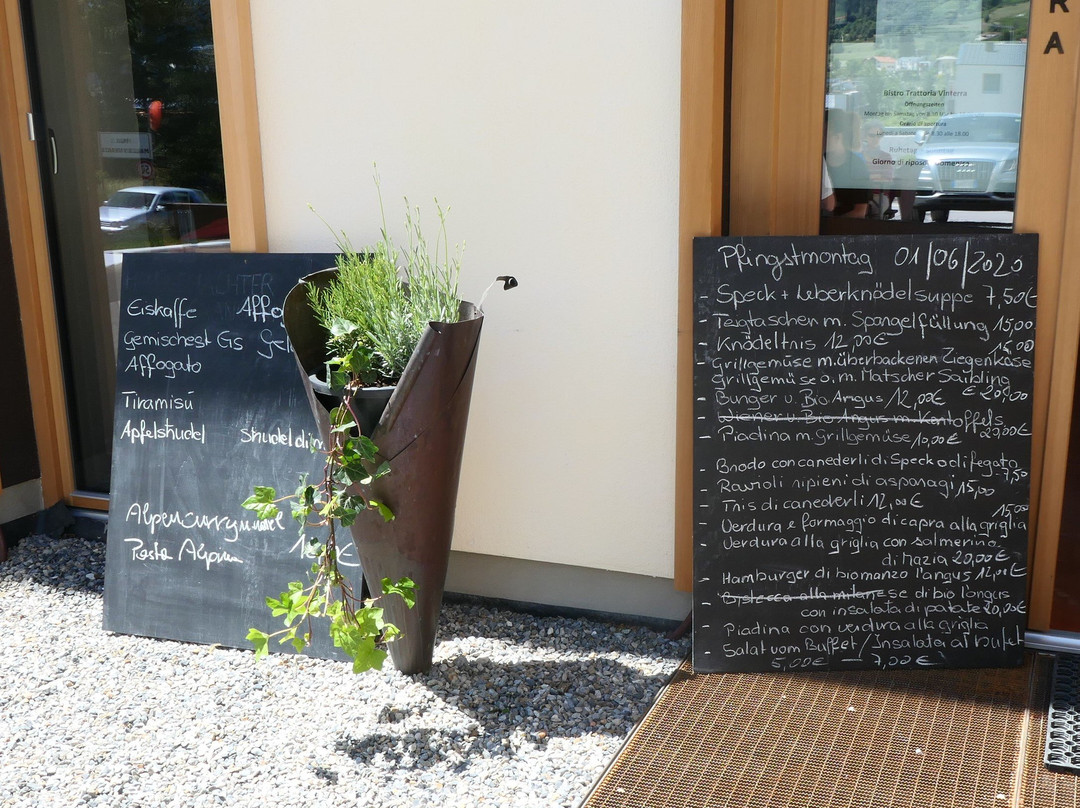 Eiskaffe Affo
Gemischest Gs Gel
Affogato
Tiramisú
Apfelstrudel Strudel di
Alpencurry
Pasta Alpin
€
R
A
Bistro Trattoria Vinterra
Öffnungszeiten
Giorno di riposo Domenica
Pfingstmontag 01/06/2020
- Speck + Leberknödelsuppe 7,50€
- Teigtaschen m. Spargelfüllung 15,00
- Knödeltris 12,00€ 15,00
- Grillgemüse m. überbackenen Ziegenkäse
Grillgemüse o. m. Matscher Saibling
- Burger v. Bio Angus 12,00€ € 20,00
- Wiener v. Bio Angus m. Kartoffels.
- Piadina m. Grillgemüse 10,00€ 20,00€
- Brodo con canederli di Speck o di fegato
- Ravioli ripieni di asparagi 15,00 7,50
- Tris di canederli 12,00€
- Verdura e formaggio di capra alla griglia 15,00
- Verdura alla griglia con salmerino
di Mazia 20,00€
- Hamburger di biomanzo l'angus 12,00€
- Bistecca alla milanese di bio l'angus
con insalata di patate 20,00€
- Piadina con verdura alla griglia
- Salat vom Buffet / Insalata al buffet
5,00€ — 7,00€